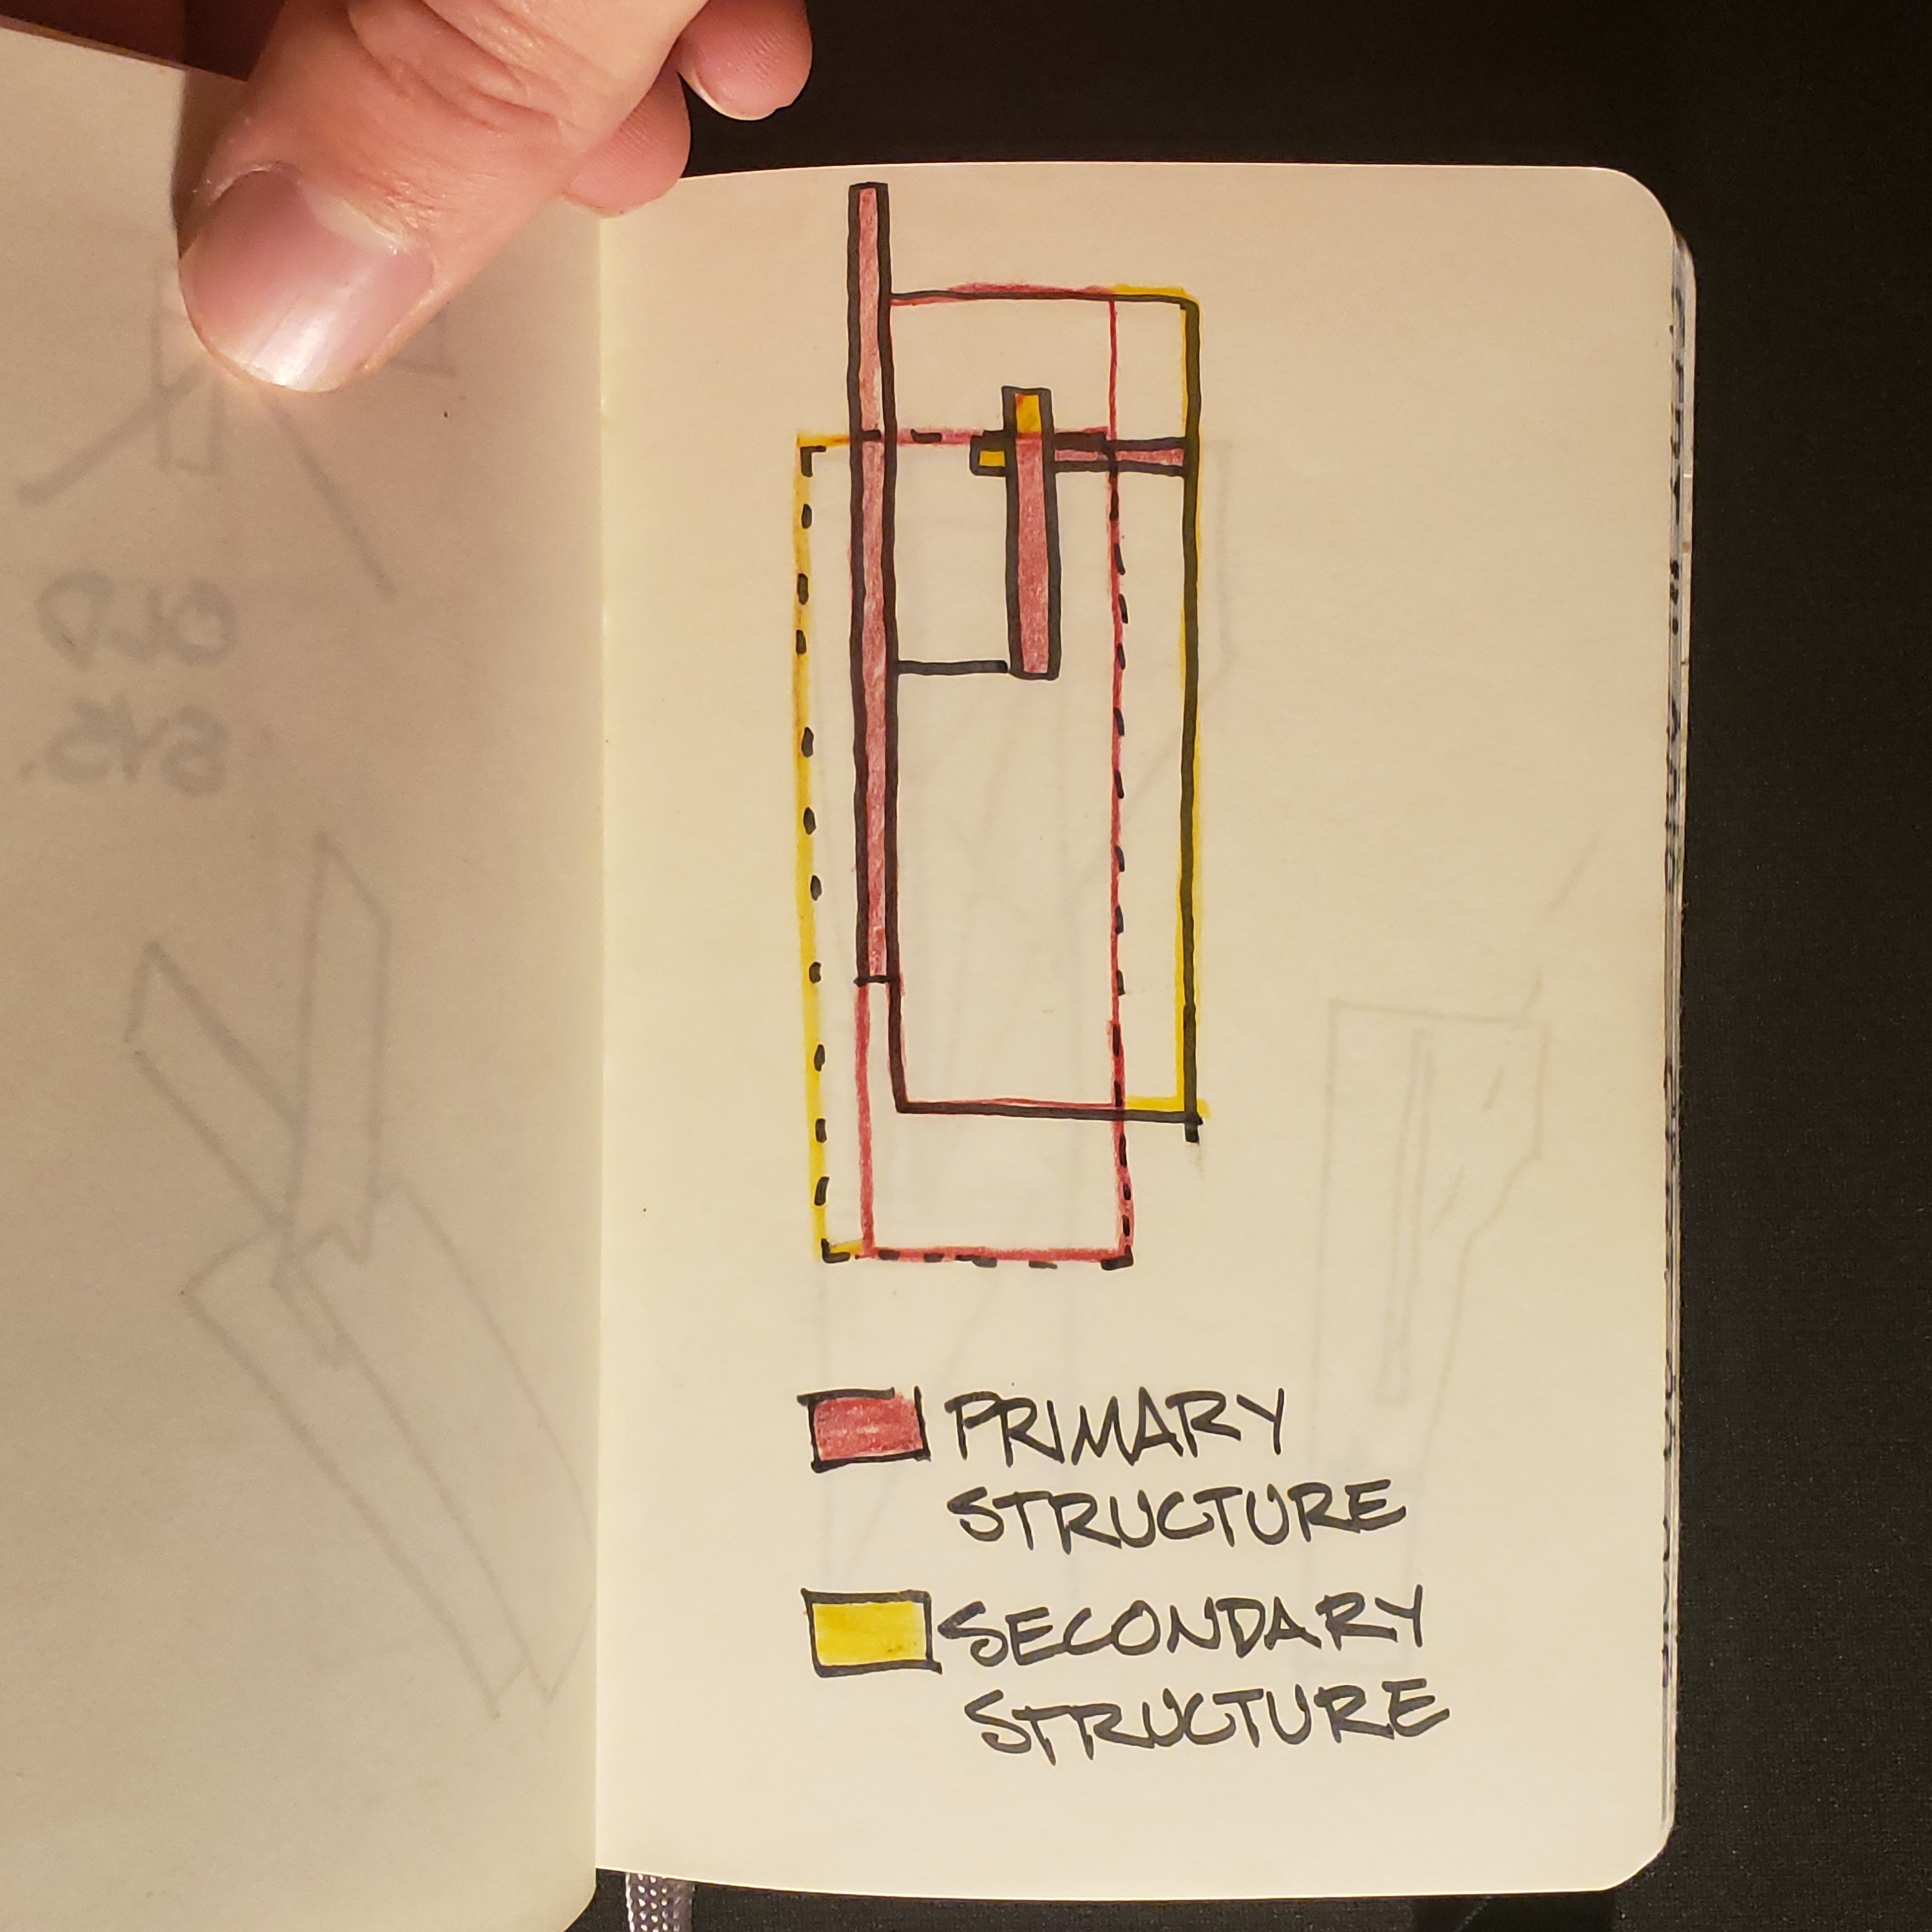 OLD
SYS.
PRIMARY
STRUCTURE
SECONDARY
STRUCTURE